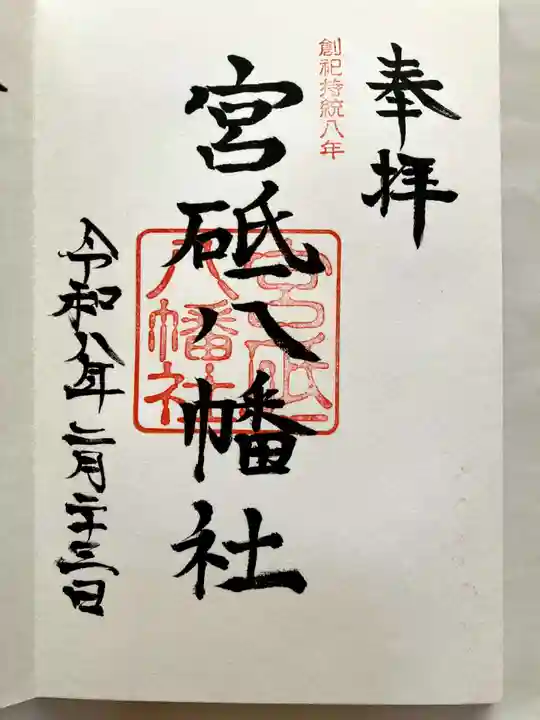 奉拝
創祀持統八年
宮砥八幡社
宮砥
八幡社
令和八年二月二十三日